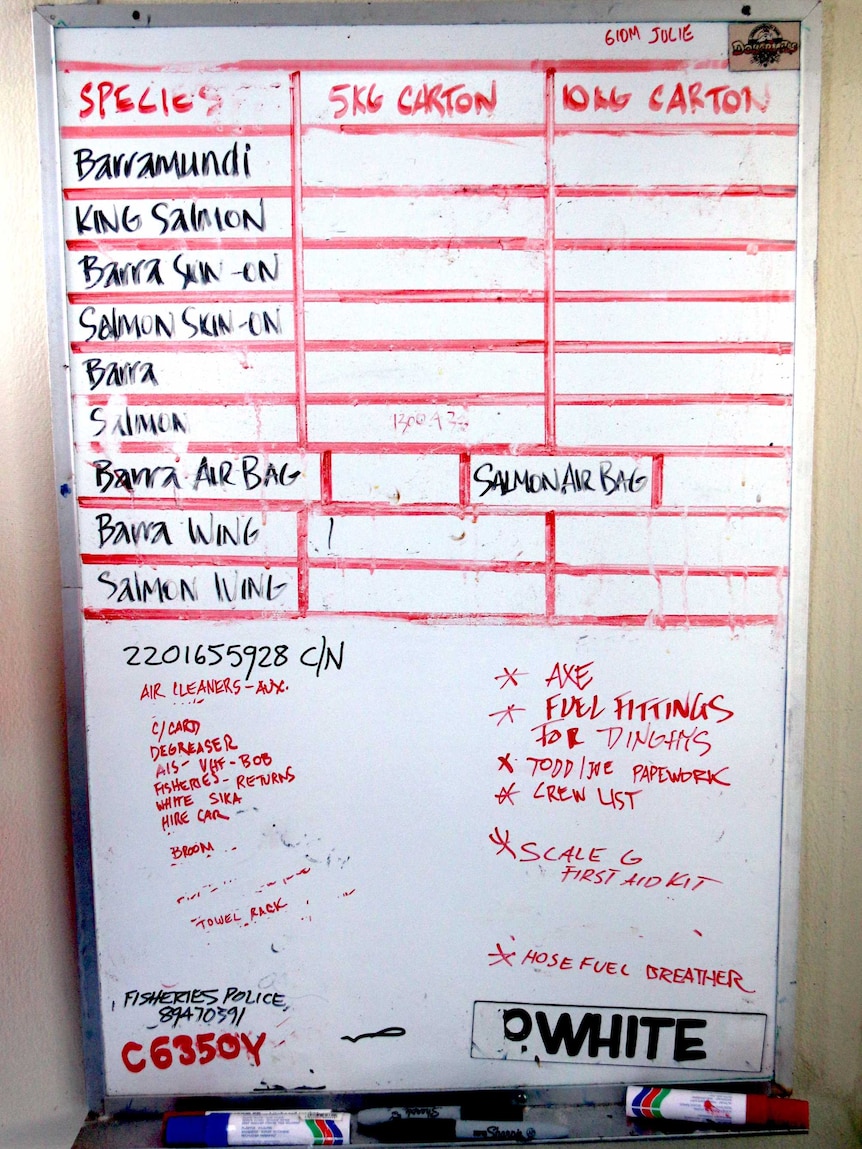 610M JULIE
SPECIES 5KG CARTON 10KG CARTON
Barramundi
KING SALMON
Barra SKIN-ON
SALMON SKIN-ON
Barra
Salmon
Barra AIR BAG SALMON AIR BAG
Barra WING
SALMON WING
2201655928 C/N
AIR CLEANERS-AUX.
C/CARD
DEGREASER
AIS- VHF-BOB
FISHERIES-RETURNS
WHITE SIKA
HIRE CAR
BROOM
TOWEL RACK
* AXE
* FUEL FITTINGS
FOR DINGHYS
* TODD/JOE PAPEWORK
* CREW LIST
* SCALE G
FIRST AID KIT
* HOSE FUEL BREATHER
FISHERIES POLICE
89470391
C6350Y
P.WHITE
Sharpie
Sharpie